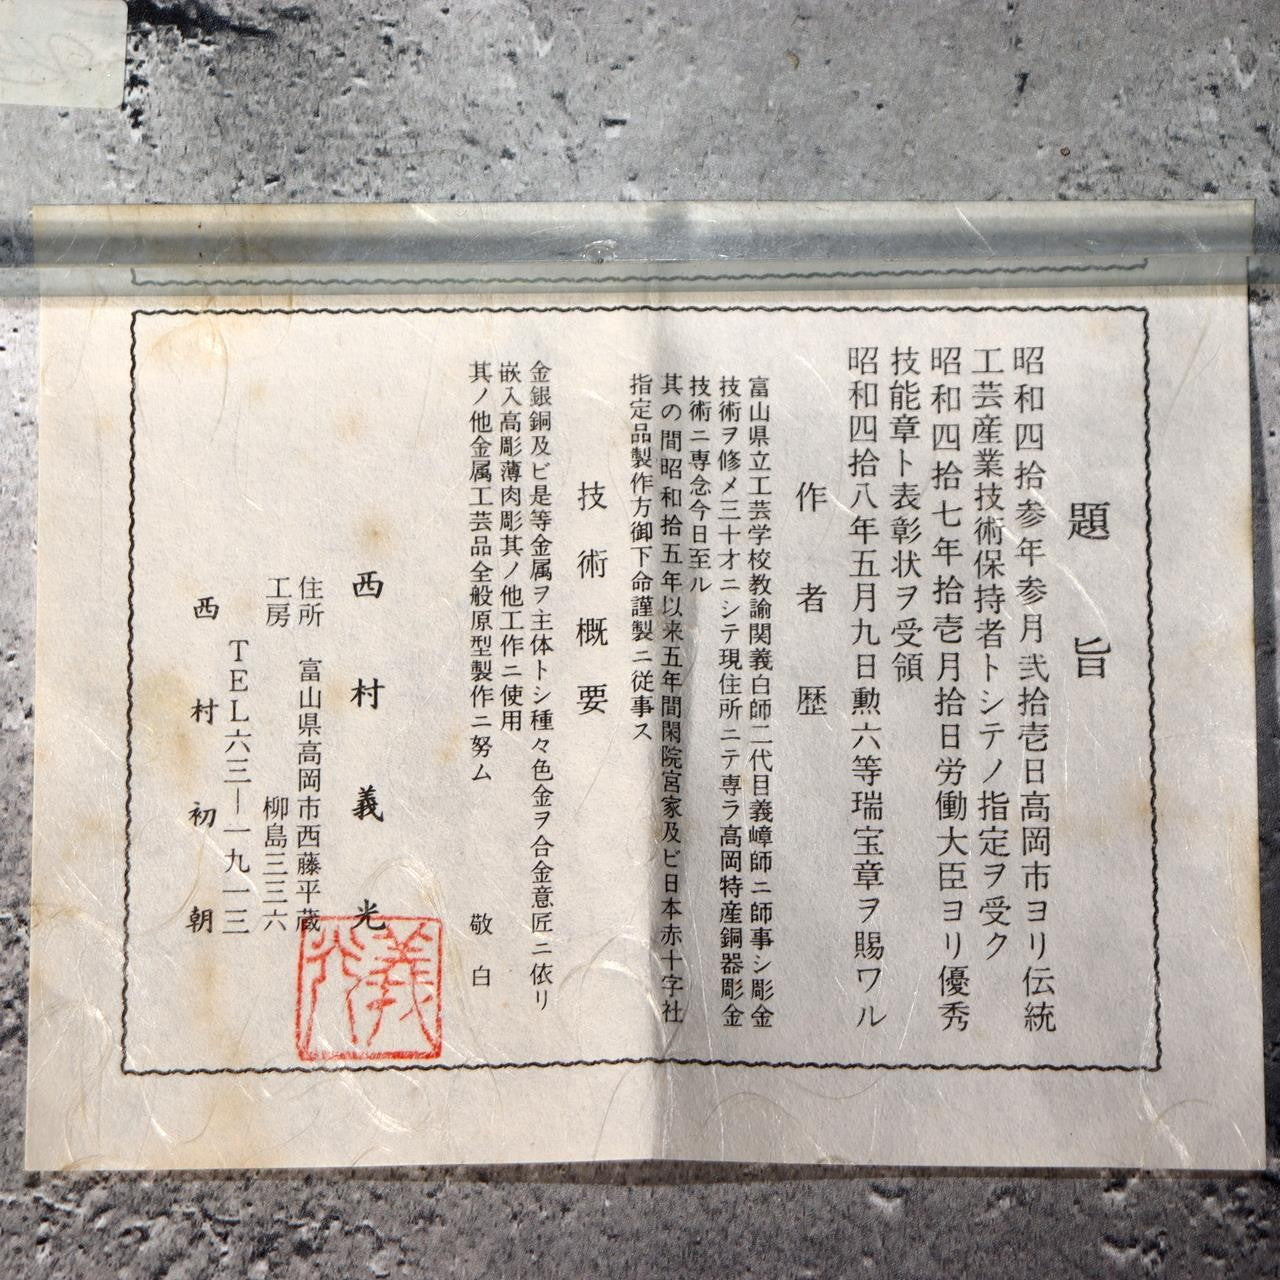 題旨
昭和四拾参年参月弐拾壱日高岡市ヨリ伝統
工芸産業技術保持者トシテノ指定ヲ受ク
昭和四拾七年拾壱月拾日労働大臣ヨリ優秀
技能章ト表彰状ヲ受領
昭和四拾八年五月九日勲六等瑞宝章ヲ賜ワル
作者歴
富山県立工芸学校教諭関義白師二代目義嶂師ニ師事シ彫金
技術ヲ修メ三十才ニシテ現住所ニテ専ラ高岡特産銅器彫金
技術ニ専念今日至ル
其の間昭和拾五年以来五年間閑院宮家及ビ日本赤十字社
指定品製作方御下命謹製ニ従事ス
技術概要
金銀銅及ビ是等金属ヲ主体トシ種々色金ヲ合金意匠ニ依リ
嵌入高彫薄肉彫其ノ他工作ニ使用
其ノ他金属工芸品全般原型製作ニ努ム 敬白
西村義光
義光
住所 富山県高岡市西藤平蔵
工房 柳島三三六
TEL六三―一九一三
西村初朝